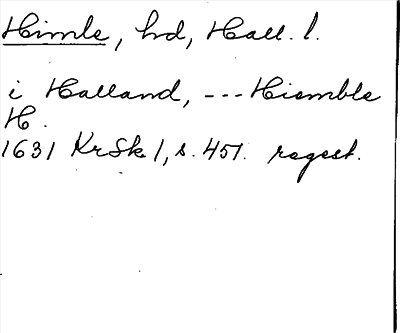 Himle, hd, Hall. l.
i Halland, --- Hiemble
H.
1631 KrSk 1, s. 451. regest.